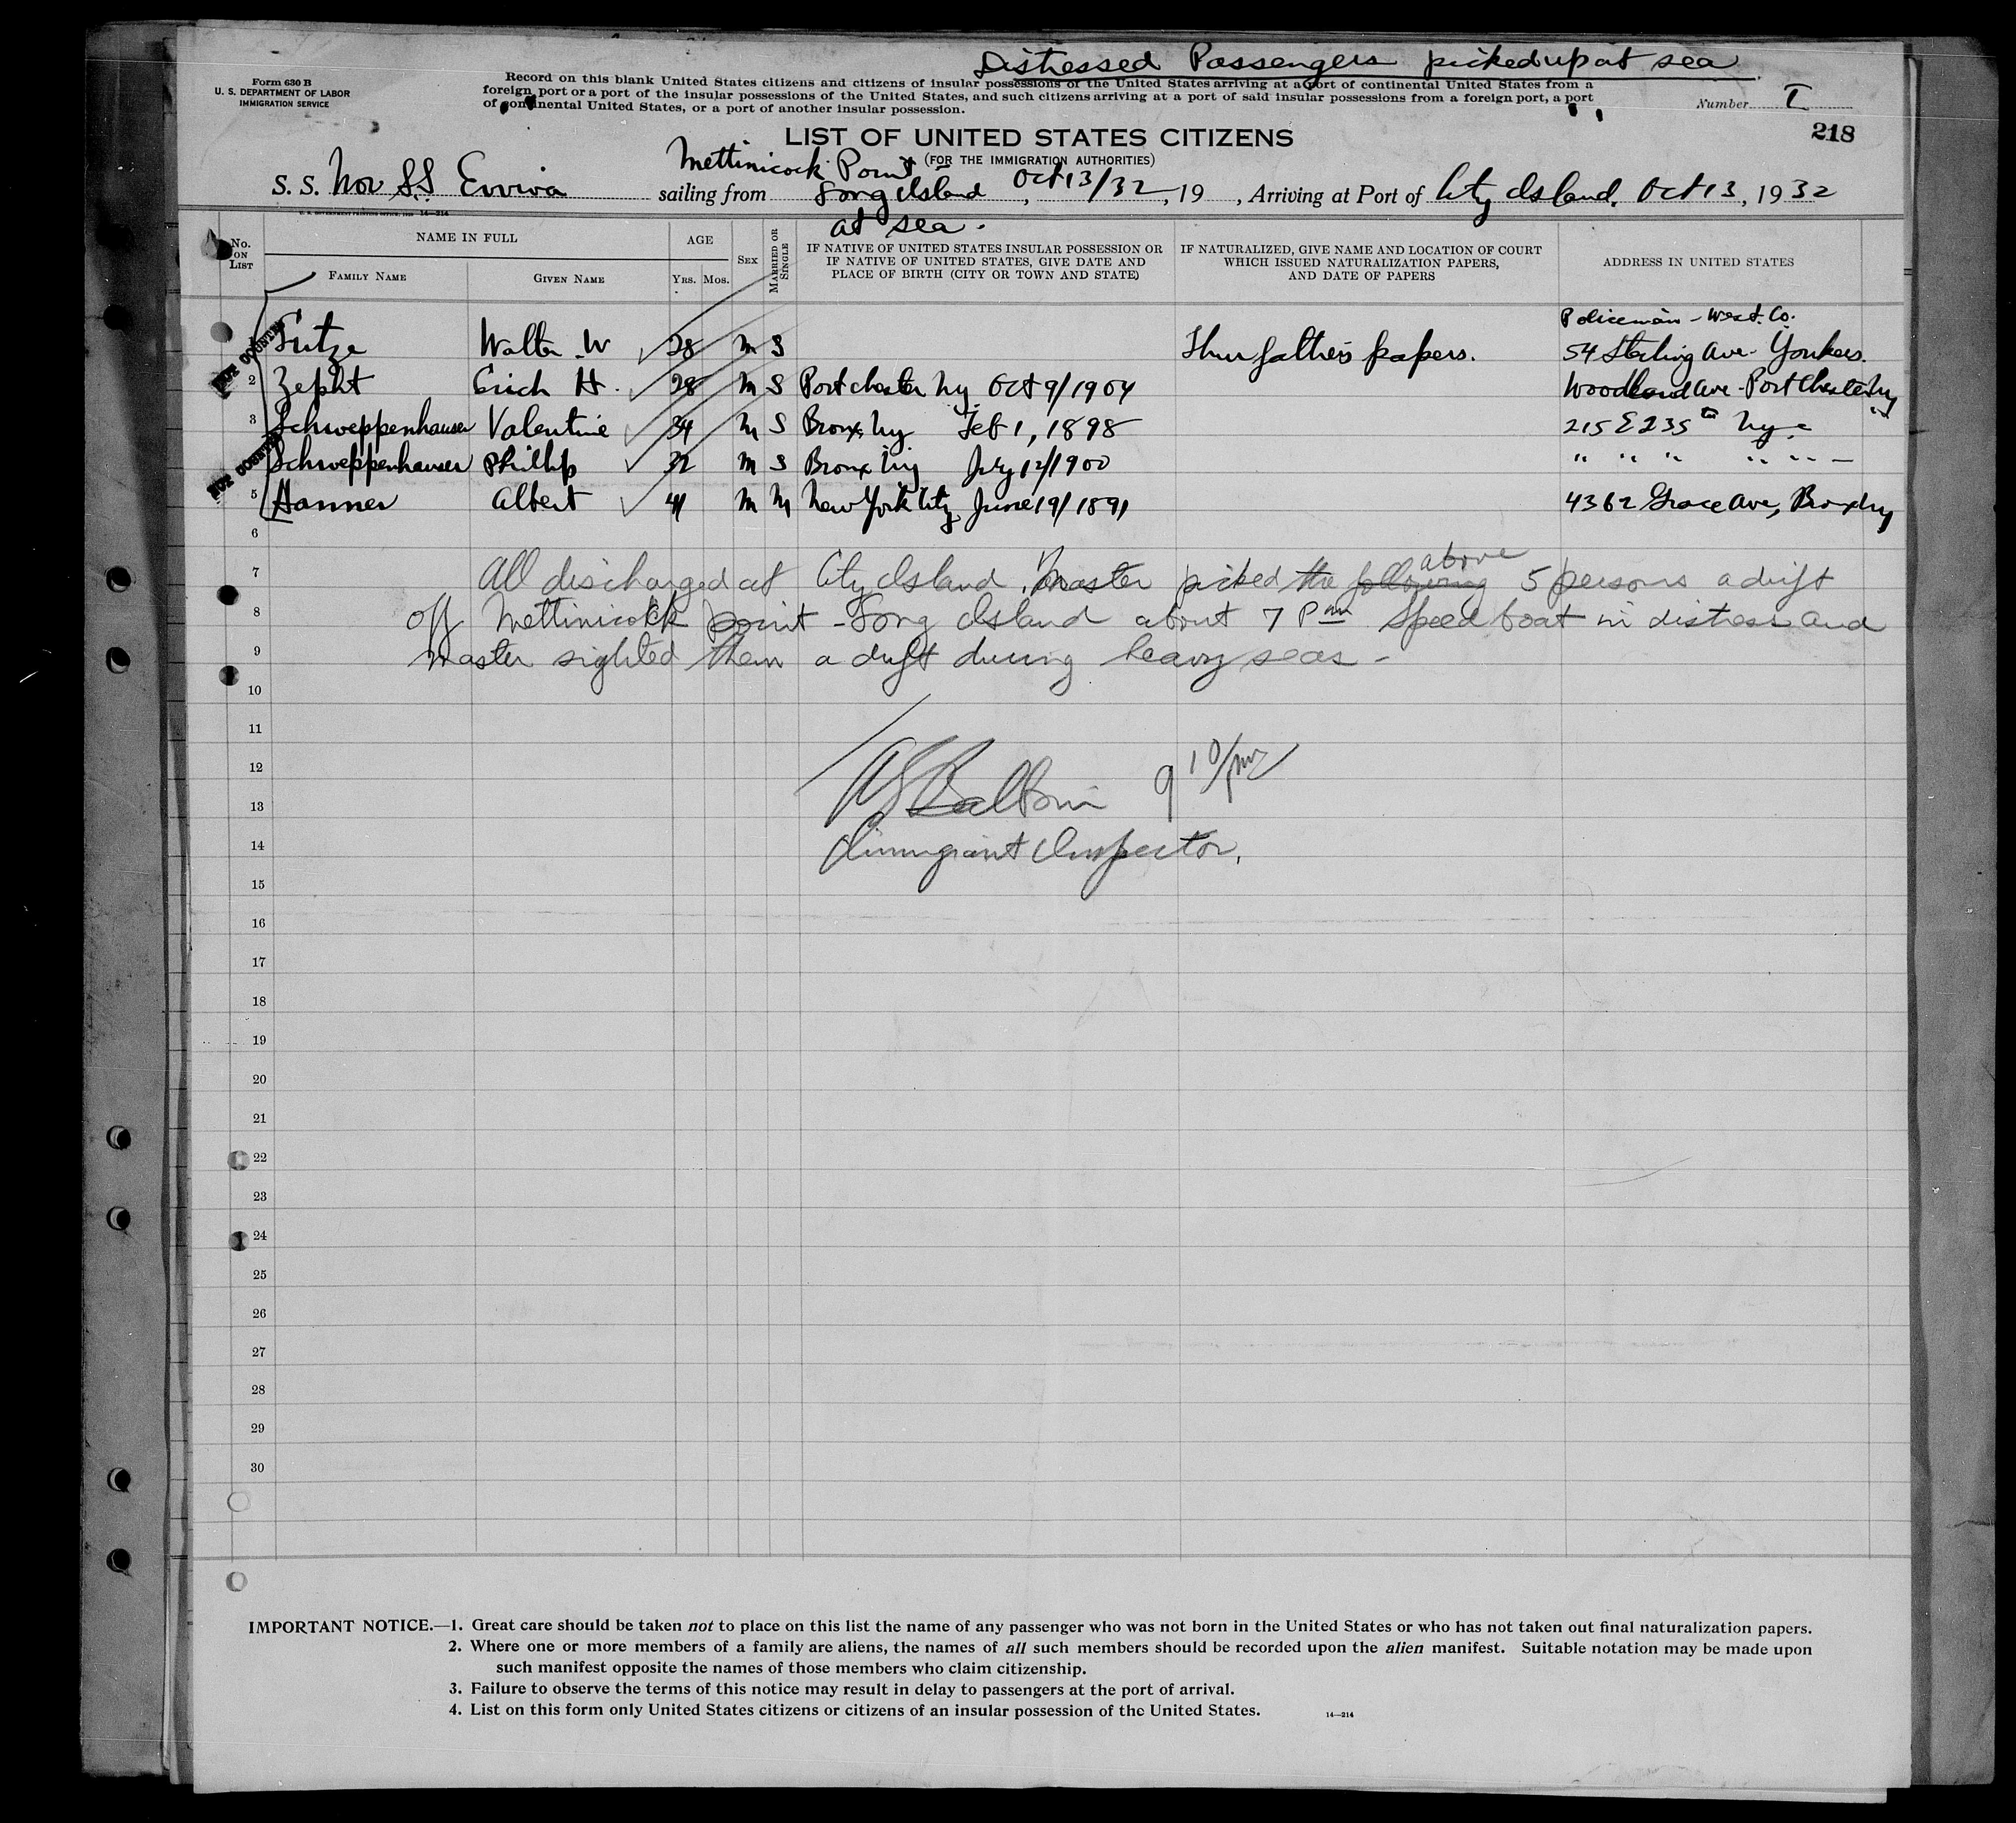 Distressed Passengers picked up at sea
Form 630 B
U. S. DEPARTMENT OF LABOR
IMMIGRATION SERVICE
Record on this blank United States citizens and citizens of insular possessions of the United States arriving at a port of continental United States from a
foreign port or a port of the insular possessions of the United States, and such citizens arriving at a port of said insular possessions from a foreign port, a port
of continental United States, or a port of another insular possession.
Number I
218
LIST OF UNITED STATES CITIZENS
(FOR THE IMMIGRATION AUTHORITIES)
Mettinicock Point
S. S. Nor S.S Evviva sailing from Long Island, Oct 13/32, 19 , Arriving at Port of City Island, Oct 13, 1932
at sea.
No. ON LIST
NAME IN FULL
FAMILY NAME
GIVEN NAME
AGE
YRS. MOS.
SEX
MARRIED OR SINGLE
IF NATIVE OF UNITED STATES INSULAR POSSESSION OR
IF NATIVE OF UNITED STATES, GIVE DATE AND
PLACE OF BIRTH (CITY OR TOWN AND STATE)
IF NATURALIZED, GIVE NAME AND LOCATION OF COURT
WHICH ISSUED NATURALIZATION PAPERS,
AND DATE OF PAPERS
ADDRESS IN UNITED STATES
Policeman - West. Co.
1 Walter W 28 M S Thru father's papers. 54 Sterling Ave - Yonkers.
2 Zepht Erich H. 28 M S Portchester Ny Oct 9/1904 Woodland Ave - Port Chester Ny
3 Schweppenhauser Valentine 34 M S Bronx Ny Feb 1, 1898 215 E 235 th Nyc "
Schweppenhauser Phillip 32 M S Bronx Ny July 12/1900 " " " " " " —
5 Hanner Albert 41 M M New York City June 19/1891 4362 Grace Ave, Bronx Ny
NOT COUNTED
NOT COUNTED
6
above
7 All discharged at City Island. Master picked the following 5 persons adrift
8 off Mettinicock point - Long Island about 7 Pm Speed boat in distress and
9 Master sighted them adrift during heavy seas -
10
11
12
13 Baldwin 9 10/pm
14 Immigrant Inspector.
15
16
17
18
19
20
21
22
23
24
25
26
27
28
29
30
IMPORTANT NOTICE.—1. Great care should be taken not to place on this list the name of any passenger who was not born in the United States or who has not taken out final naturalization papers.
2. Where one or more members of a family are aliens, the names of all such members should be recorded upon the alien manifest. Suitable notation may be made upon
such manifest opposite the names of those members who claim citizenship.
3. Failure to observe the terms of this notice may result in delay to passengers at the port of arrival.
4. List on this form only United States citizens or citizens of an insular possession of the United States.
14—214